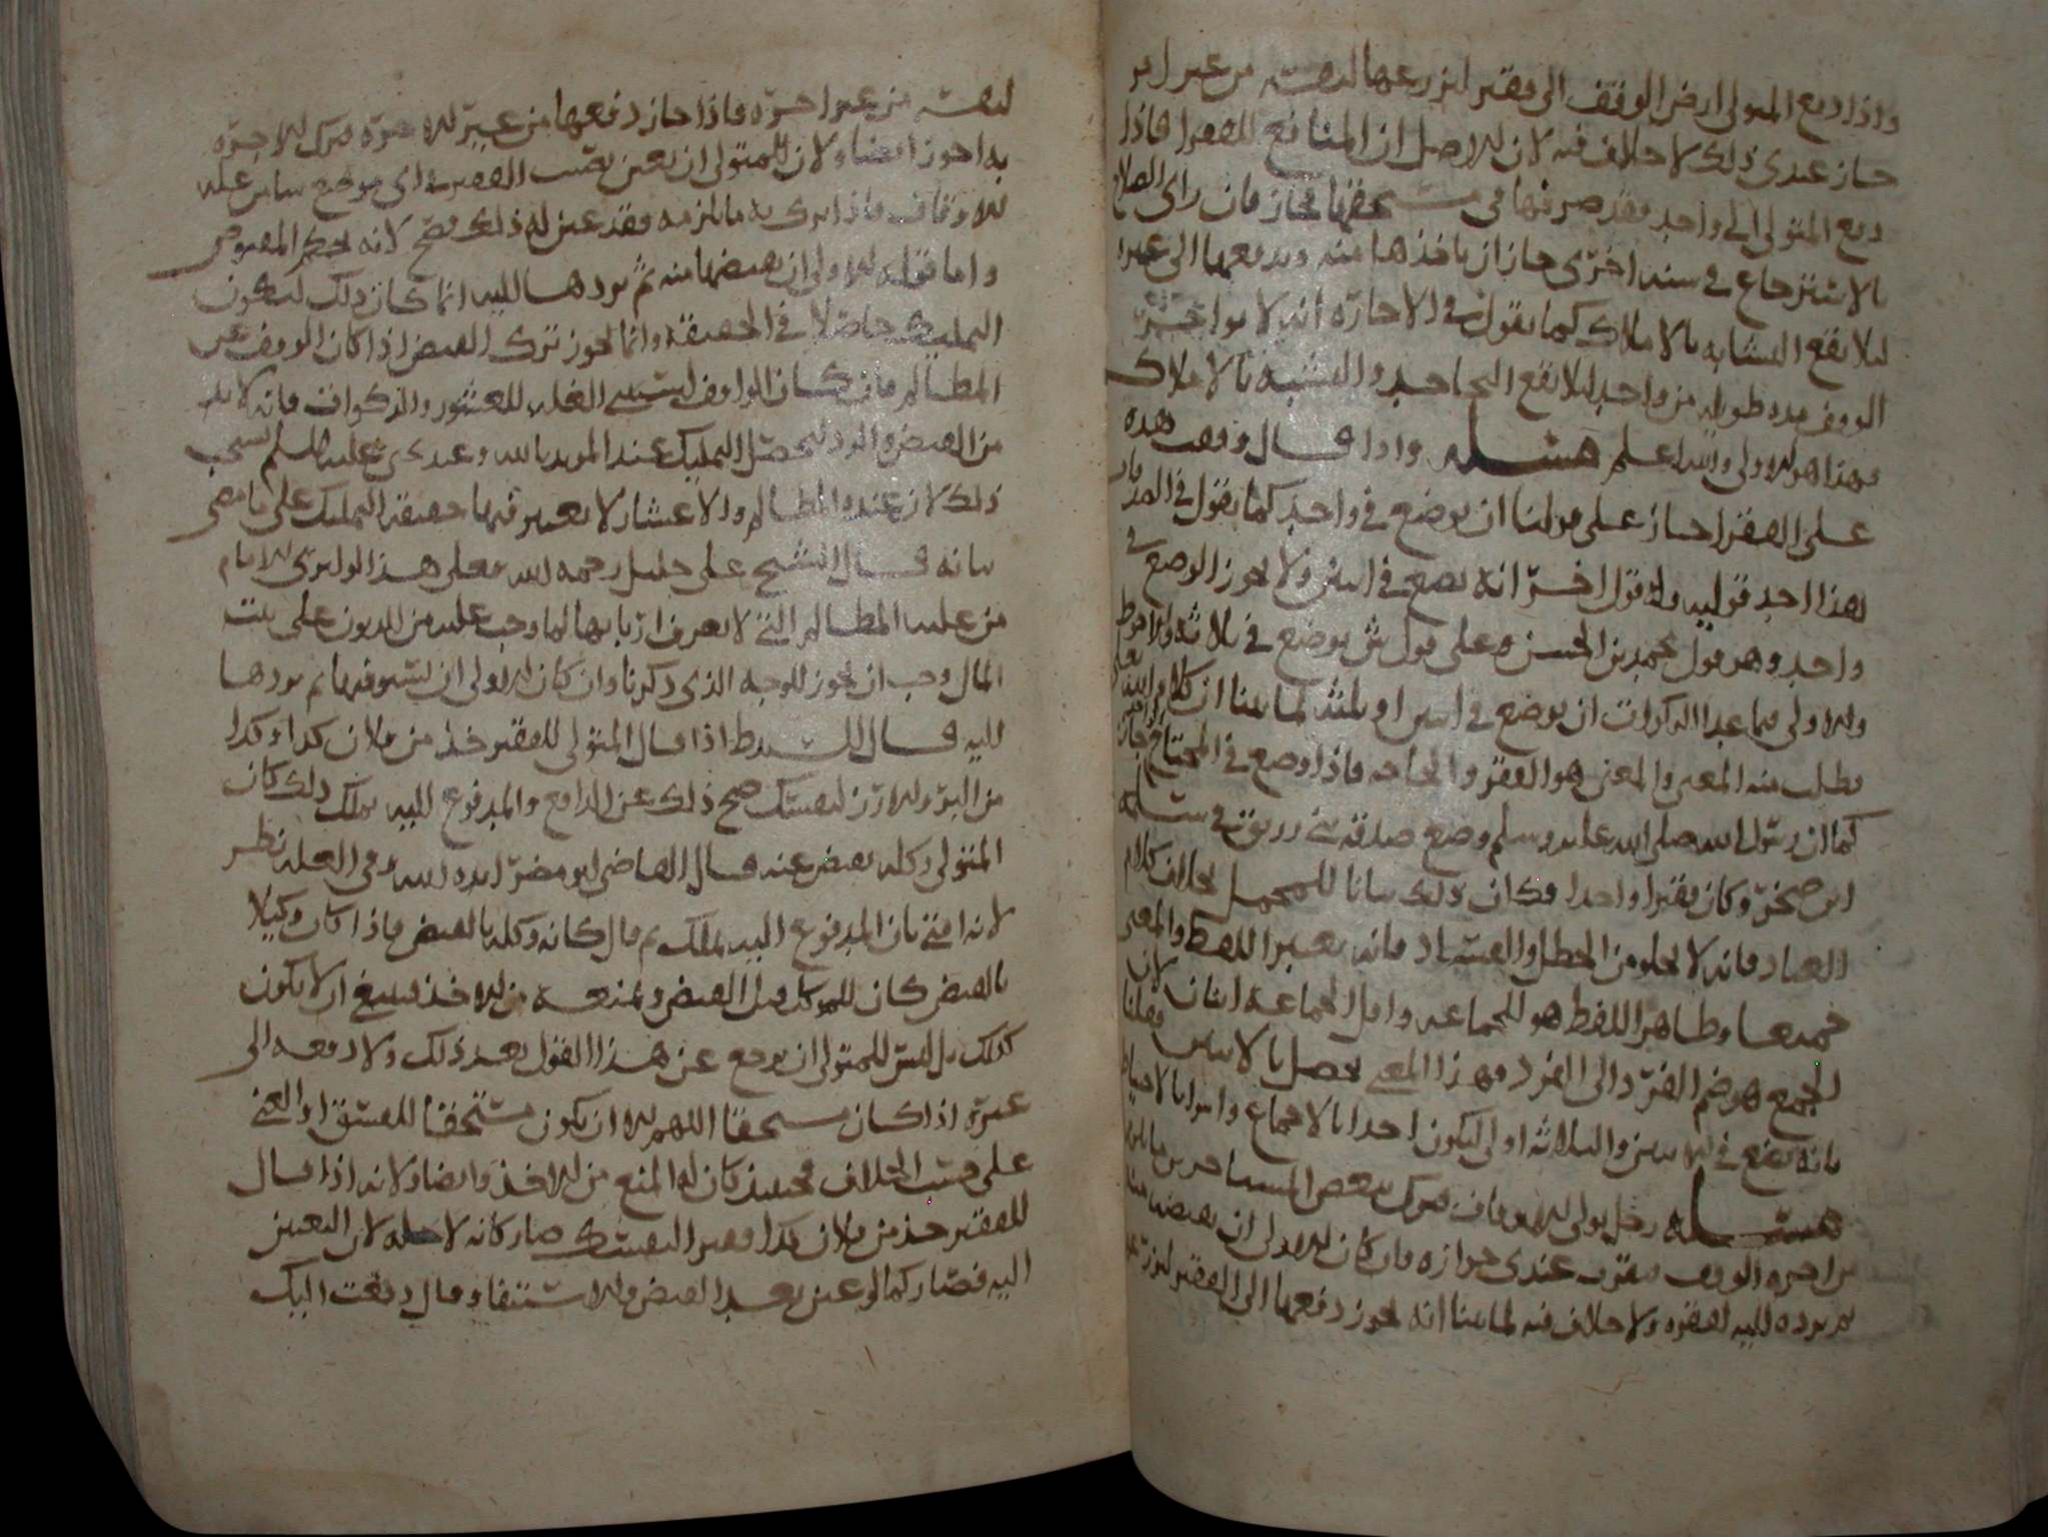 واذا دفع المتولي ارض الوقف الى فقير ليزرعها لنفسه من غير اجر
جاز عندي ذلك لا خلاف فيه لان الاصل ان المنافع للفقرا فاذا
دفع المتولي الى واحد فقد صرفها في مستحقها فجاز فان راى الصلاح
بالاسترجاع في سنه اخرى جاز ان ياخذها منه ويدفعها الى غيره
ليلا يقع التشابه بالاملاك كما يقول في الاجاره انه لا يواجر
الوقف مده طويله من واحد ليلا يقع التجاحد والتشبه بالاملاك
فهذا هو الاولى والله اعلم مسله واذا قال وقفت هذه
على الفقرا جاز على قولنا ان يوضع في واحد كما يقول في
هذا احد قوليه وله قول اخر انه يضع في اثنين ولا يجوز الوضع في
واحد وهو قول محمد بن الحسن وعلى قول ش يوضع في ثلاثه والاحوط
والاولى فيما عدا الزكوات ان يوضع في اثنين او ثلثه لما بينا ان كلام الله تعالى
يطلب منه المعنى والمعنى هو الفقر والحاجه فاذا وضع في المحتاج جاز
كما ان رسول الله صلى الله عليه وسلم وضع صدقه بني زريق في سلمه
ابن صخر وكان فقيرا واحدا فكان ذلك بيانا للمجمل بخلاف كلام
العباد فانه لا يخلو من الخطل والفساد فانه يعتبر اللفظ والمعنى
جميعا وظاهر اللفظ هو للجماعه واقل الجماعه اثنان لان
الجمع هو ضم الفرد الى الفرد وهذا المعنى يحصل بالاثنين وقلنا
بانه يضع في الاثنين والثلاثه اولى ليكون احدا بالاجماع
مسله رجل يولى الاوقاف فترك لبعض المستاجرين
من اجره الوقف فيقرب عندي جوازه فان كان الاولى ان يقبضها منه
ثم يرده اليه لفقره ولا خلاف فيه لما بينا انه يجوز دفعها الى الفقير
لنفسه من غير اجره فاذا جاز دفعها من غير الاجره فترك الاجره
به اجوز ايضا ولان للمتولي ان يعين نصيب الفقير في اي موضع
الاوقاف فاذا ترك به ما لزمه فقد عين له ذلك فصح لانه بحكم المقبوض
واما قوله الاولى ان يقبضها منه ثم يردها اليه انما كان ذلك ليكون
التمليك حاصلا في الحقيقه وانما يجوز ترك القبض اذا كان الوقف عن
المظالم فان كان الواقف استثنى الغله للعشور والزكوات فانه لا بد
من القبض والرد ليحصل التمليك عند المويد بالله وعند ى عليه السلم يستحب
ذلك لان عنده المظالم والاعشار لا يعتبر فيها حقيقه التمليك على ما مضى
بيانه قال الشيخ علي خليل رحمه الله فعلى هذا لو ابرى الامام
من عليه المظالم التي لا يعرف اربابها لما وجب عليه من الديون على بيت
المال وجب ان يجوز للوجه الذي ذكرنا وان كان الاولى ان يستوفيها ثم يردها
اليه قال اذا قال المتولي للفقير خذ من فلان كذا وكذا
من البر والارز لنفسك صح ذلك عن الدافع والمدفوع اليه يملك ذلك كان
المتولي وكله بقبض عنه قال القاضي ابو مضر ايده الله وفي العله نظر
لانه افتى بان المدفوع اليه يملك ثم قال كانه وكله بالقبض فاذا كان وكيلا
بالقبض كان للموكل قبل القبض ويمنعه من الاخذ فينبغي ان لا يكون
كذلك بل ليس للمتولي ان يرجع عن هذا القول بعد ذلك ولا دفعه الى
غيره اذا كان مستحقا اللهم الا ان يكون مستحقا للفسق او الغنى
على حسب الخلاف فحينيذ كان له المنع من الاخذ وايضا ولانه اذا قال
للفقير خذ من فلان كذا فقبر التفسك صار كانه لاجله لان التعيين
اليه فصار كما لو عين بعد القبض والاستيفا وقال دفعت اليك